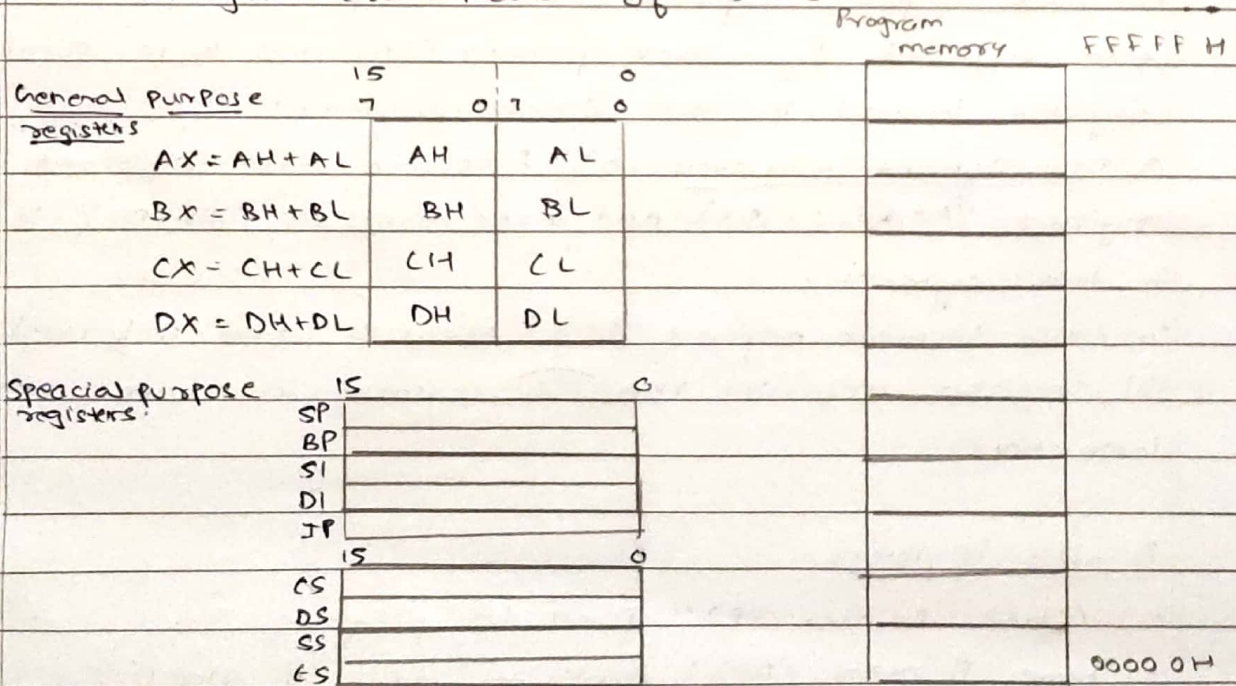 Program
memory
FFFFF H
15 0
General purpose
registers
7 0 7 0
AX = AH + AL AH AL
BX = BH + BL BH BL
CX = CH + CL CH CL
DX = DH + DL DH DL
Speacial purpose
registers
15 0
SP
BP
SI
DI
IP
15 0
CS
DS
SS
ES
0000 0H